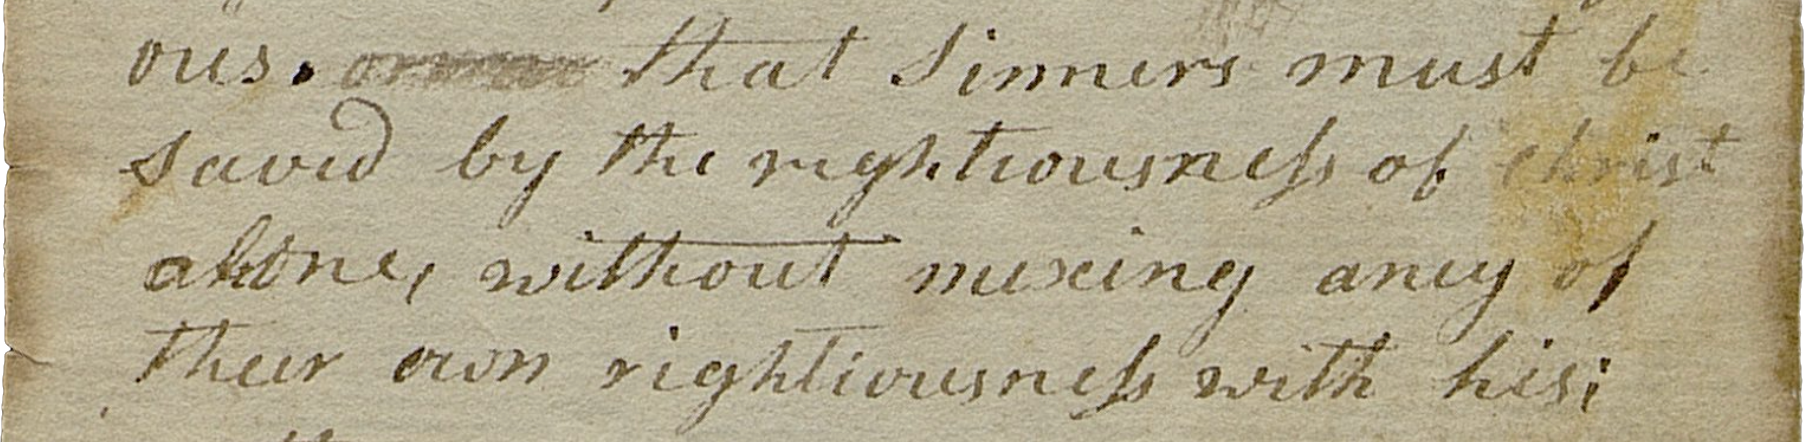 ous. that Sinners must be
saved by the rightiousness of christ
alone, without mixing any of
their own rightiousness with his;